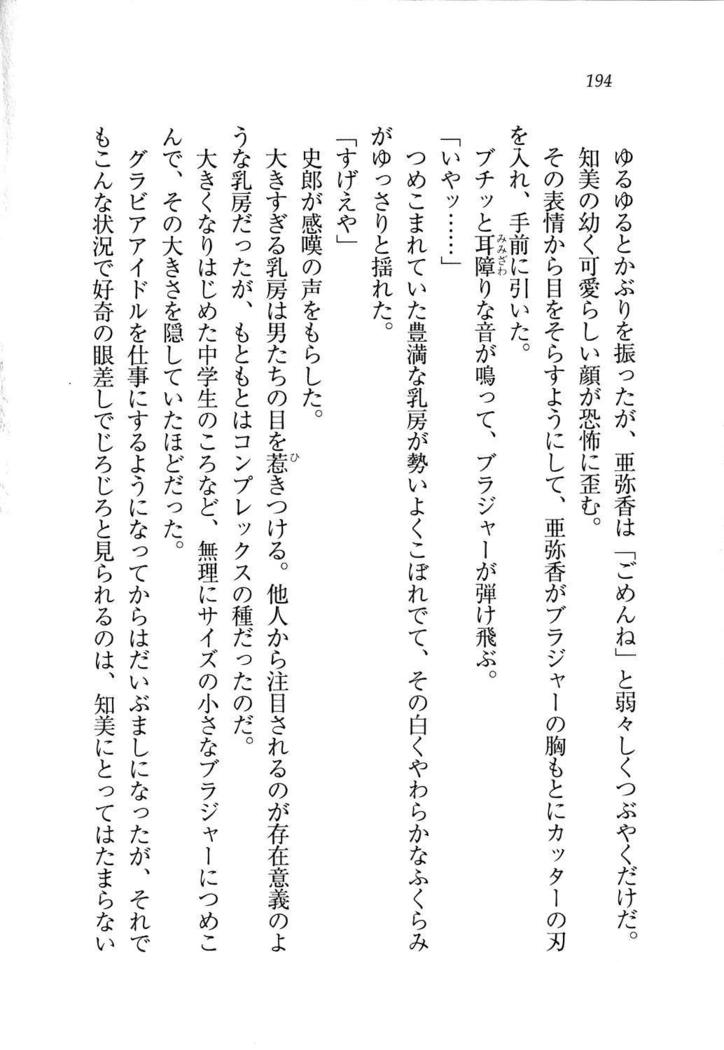 194
ゆるゆるとかぶりを振ったが、亜弥香は「ごめんね」と弱々しくつぶやくだけだ。
知美の幼く可愛らしい顔が恐怖に歪む。
その表情から目をそらすようにして、亜弥香がブラジャーの胸もとにカッターの刃
を入れ、手前に引いた。
ブチッと耳障りな音が鳴って、ブラジャーが弾け飛ぶ。
「いやッ……」
つめこまれていた豊満な乳房が勢いよくこぼれでて、その白くやわらかなふくらみ
がゆっさりと揺れた。
「すげえや」
史郎が感嘆の声をもらした。
大きすぎる乳房は男たちの目を惹きつける。他人から注目されるのが存在意義のよ
うな乳房だったが、もともとはコンプレックスの種だったのだ。
大きくなりはじめた中学生のころなど、無理にサイズの小さなブラジャーにつめこ
んで、その大きさを隠していたほどだった。
グラビアアイドルを仕事にするようになってからはだいぶましになったが、それで
もこんな状況で好奇の眼差しでじろじろと見られるのは、知美にとってはたまらない